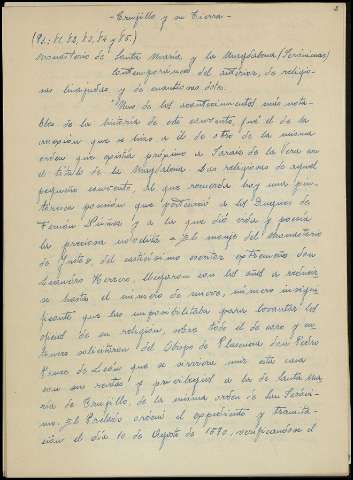 2
-Trujillo y su Tierra-
(Pg. 81, 82, 83, 84 y 85.)
Monasterio de Santa María y la Magdalena (Jerónimas)
Contemporáneo del anterior, de religio-
sas linajudas y de cuantiosas dotes.
"Uno de los acontecimientos más nota-
bles de la historia de este convento, fué el de la
anexión que se hizo a él de otro de la misma
orden que existía próximo a Jaraiz de la Vera con
el título de la Magdalena. Las religiosas de aquel
pequeño convento, al que recuerda hoy una pin-
toresca posesión que perteneció a los Duques de
Fernán Núñez y a la que dió vida y poesía
la preciosa novelita - El monje del Monasterio
de Yuste, del castizo escritor extremeño don
Leandro Herrero, llegaron con los años a reducir
se hasta el número de nueve, número insigni
ficante que las imposibilitaba para levantar los
oficios de su religión, sobre todo el de coro y en
tonces solicitaron del Obispo de Plasencia don Pedro
Ponce de León que se sirviera unir esta casa
con sus rentas y privilegios a la de Santa Ma
ría de Trujillo, de la misma orden de San Jeróni-
mo. El Prelado ordenó el expediente y tramita-
ción el día 10 de Agosto de 1570, verificándose el